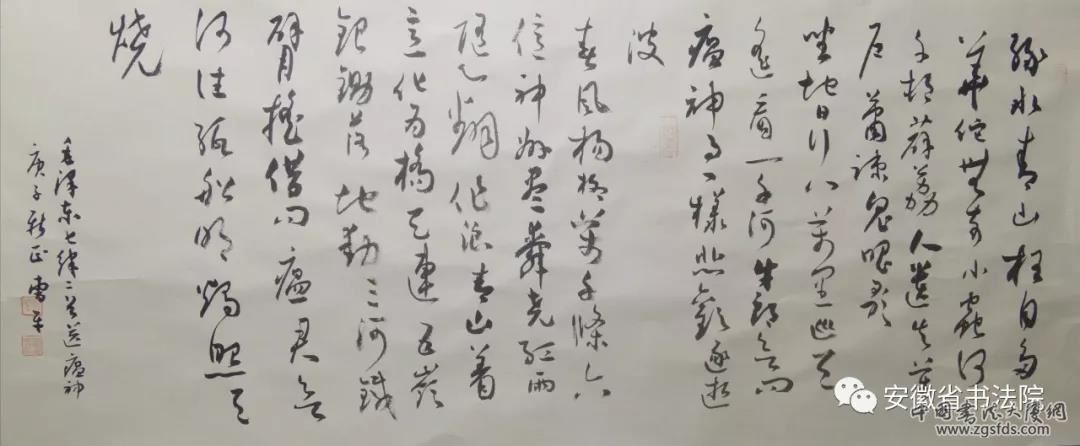 绿水青山枉自多
華佗無奈小虫何
千村薜荔人遗矢萬
户萧疏鬼唱歌
坐地日行八萬里巡天
遥看一千河牛郎欲问
瘟神事一樣悲歡逐逝
波
春風杨柳萬千條六
億神州尽舜尧红雨
随心翻作浪青山着
意化为橋天連五岭
银锄落地動三河鐵
臂摇借问瘟君欲
何往纸船明燭照天
烧
毛泽东七律二首送瘟神
庚子新正
安徽省书法院
中国书法大厦網
www.zgsfds.com